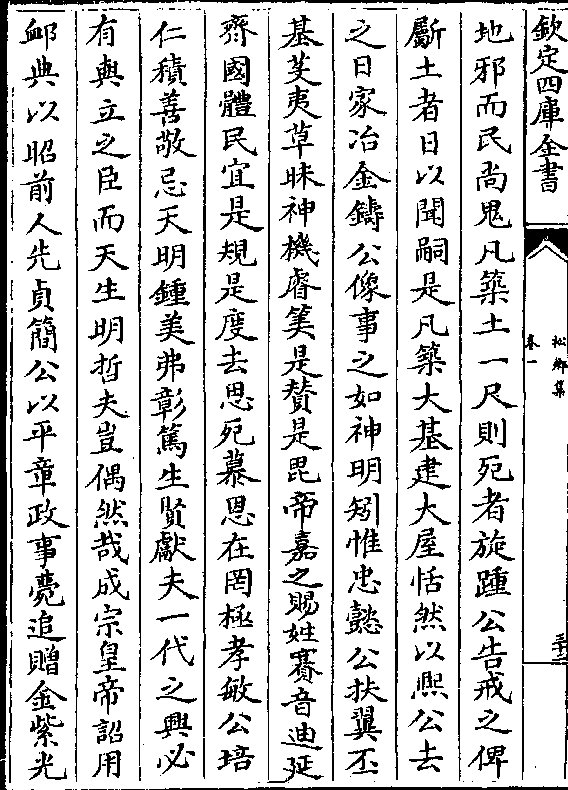 欽定四庫全書
松鄉集
卷一
地邪而民尚鬼凡築土一尺則死者旋踵公告戒之俾
斸土者日以聞嗣是凡築大基建大屋恬然以熈公去
之日家冶金鑄公像事之如神明矧惟忠懿公扶翼丕
基芟夷草昧神機睿筭是賛是毘帝嘉之賜姓賽音迪延
齊國體民宜是規是度去思死慕恩在罔極孝敏公培
仁積善敬忌天明鍾美弗彰篤生賢獻夫一代之興必
有與立之臣而天生明哲夫豈偶然哉成宗皇帝詔用
衈典以昭前人先貞簡公以平章政事薨追贈金紫光